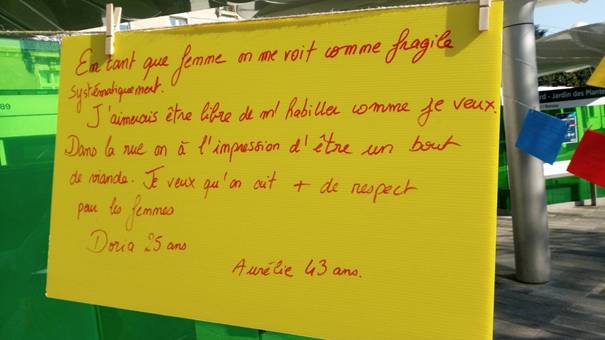 En tant que femme on me voit comme fragile
systématiquement.
J'aimerais être libre de m'habiller comme je veux.
Dans la rue on à l'impression d'être un bout
de viande. Je veux qu'on ait + de respect
pour les femmes
Doria 25 ans
Aurélie 43 ans.
89
rd - Jardin des Plante